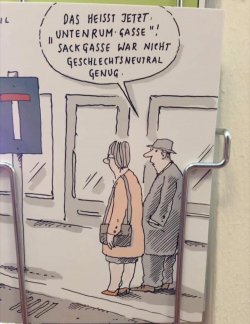 IL
DAS HEISST JETZT
„UNTENRUM-GASSE"!
SACKGASSE WAR NICHT
GESCHLECHTSNEUTRAL
GENUG.